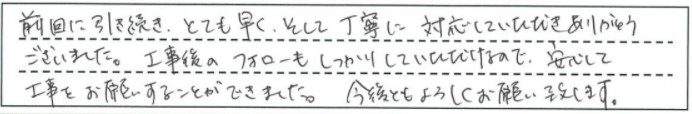 前回に引き続き、とても早く、そして丁寧に対応していただきありがとう
ございました。工事後のフォローもしっかりしていただけるので、安心して
工事をお願いすることができました。今後ともよろしくお願い致します。